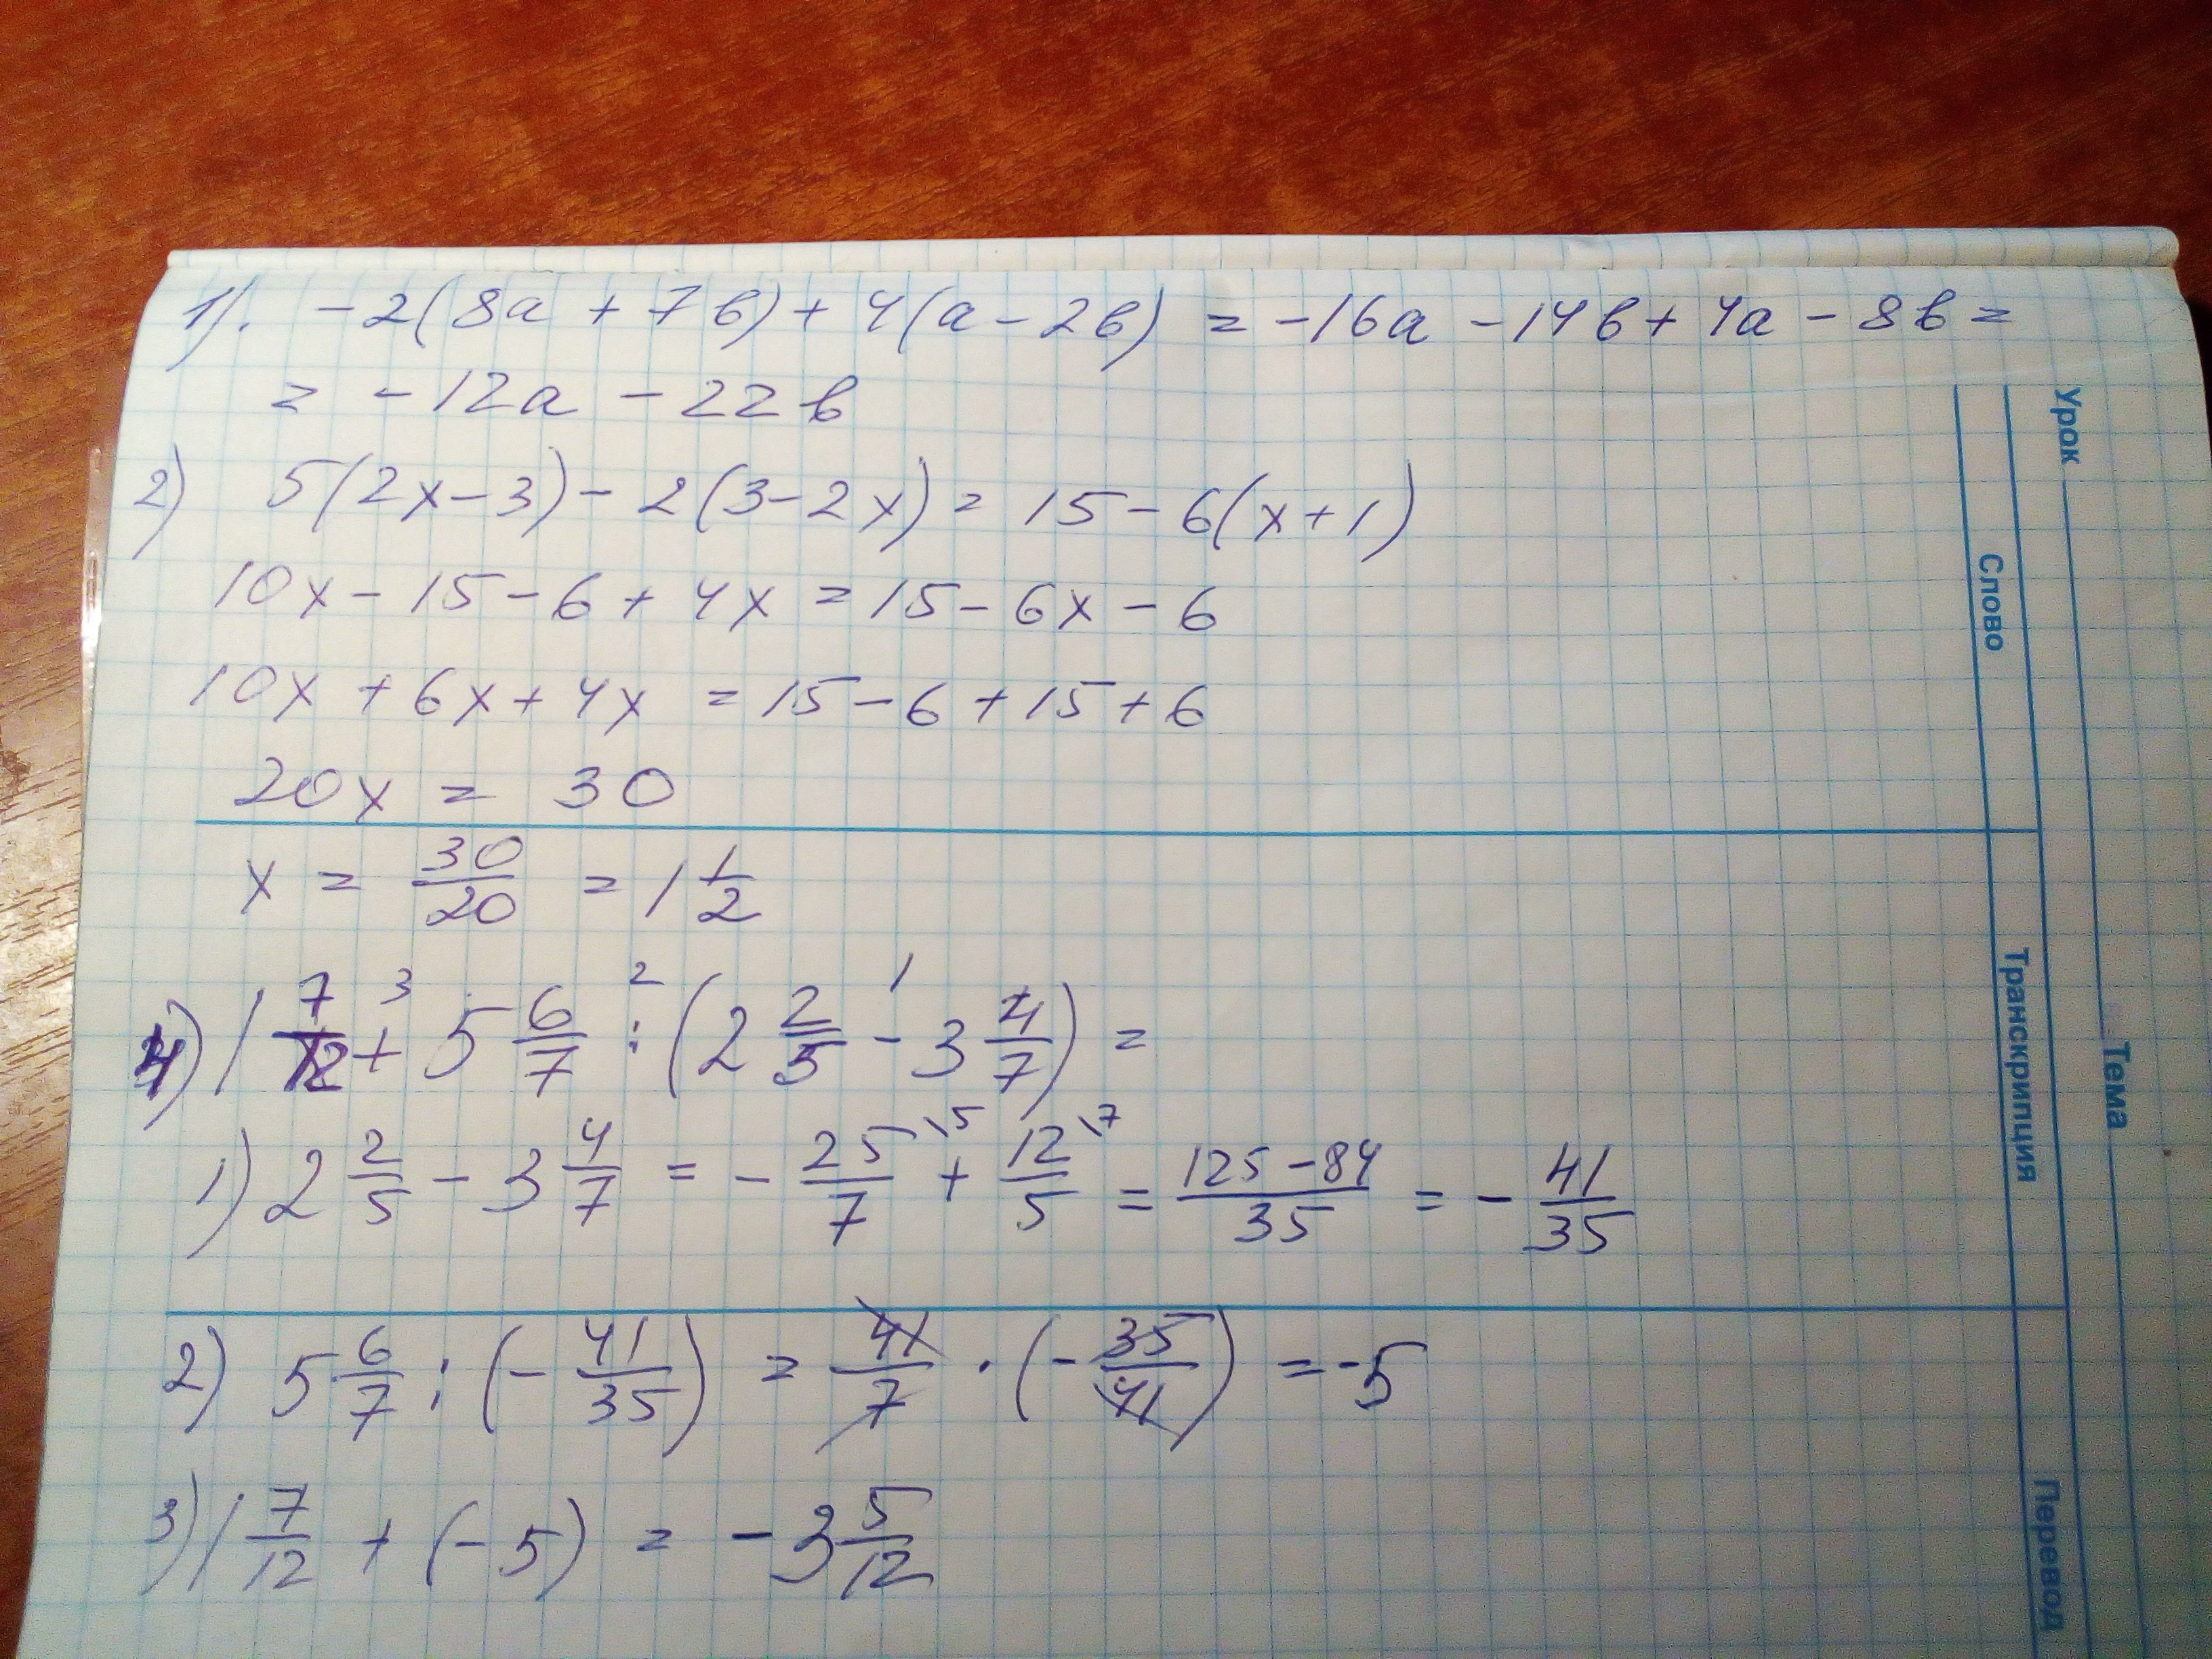 1). -2(8a + 7b) + 4(a - 2b) = -16a - 14b + 4a - 8b =
= -12a - 22b
2) 5(2x - 3) - 2(3 - 2x) = 15 - 6(x + 1)
10x - 15 - 6 + 4x = 15 - 6x - 6
10x + 6x + 4x = 15 - 6 + 15 + 6
20x = 30
x = 30/20 = 1 1/2
3 2 1
4) 1 7/12 + 5 6/7 : (2 2/5 - 3 4/7) =
1) 2 2/5 - 3 4/7 = - 25/7 \5 + 12/5 \7 = 125 - 84/35 = - 41/35
2) 5 6/7 : (- 41/35) = 41/7 · (- 35/41) = -5
3) 1 7/12 + (-5) = -3 5/12
Урок Тема
Слово Транскрипция Перевод